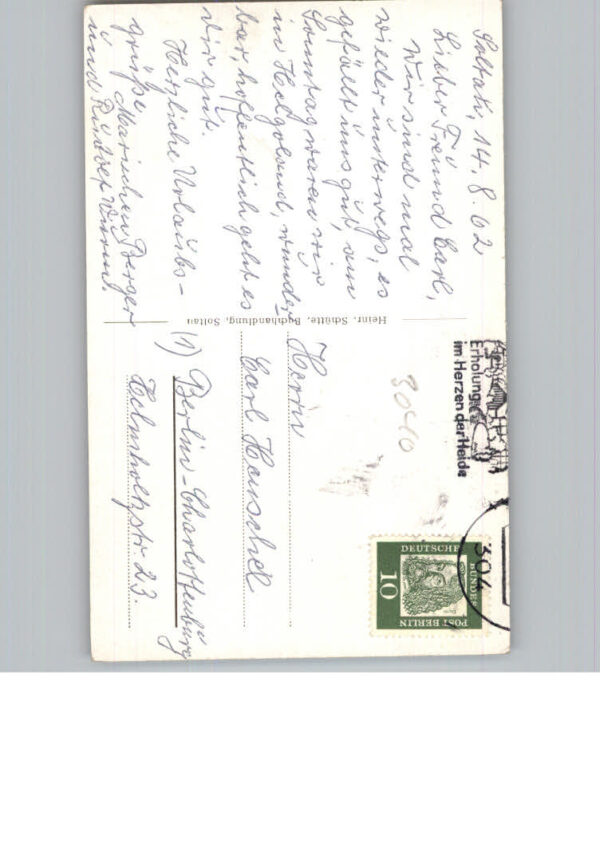 Soltau, 14.8.62
Lieber Freund Carl,
Wir sind mal
wieder unterwegs, es
gefällt uns gut, am
Sonntag waren wir
in Helgoland, wunder
bar, hoffentlich geht es
dir gut.
Herzliche Urlaubs-
grüße Mariechen Berger
und Rudolf
Heinr. Schütte, Buchhandlung, Soltau
Erholung
im Herzen der Heide
304
DEUTSCHE
BUNDES
POST BERLIN
10
3040
Herrn
Carl Henschel
(1) Berlin-Charlottenburg
Helmholtzstr. 23.